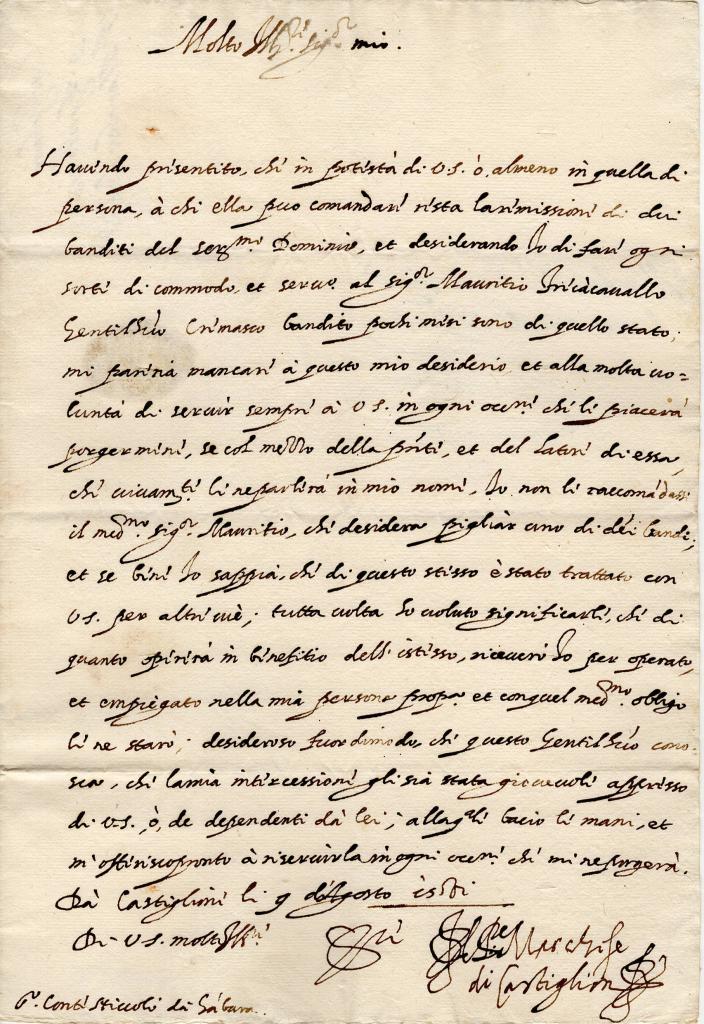 Molto Ill.ri sig.or mio.
Havendo presentito, che in potestà di V.S. ò, almeno in quella di
persona, à chi ella puo comandare resta la remissione di dui
banditi del Ser.mo Dominio, et desiderando Io di fare ogni
sorte di commodo, et servo. al sig.or Mauritio
Gentilh'uo Cremasco bandito pochi mesi sono di quello stato;
mi pareria mancare à questo mio desiderio, et alla molta vo=
luntà di servir sempre à V.S. in ogni occ.ne che li piacerà
porgermene, se col mezzo della p'nte, et del latore di essa,
che vivam.te li ne parlerà in mio nome, Io non li raccomādassi
il med.mo sig.or Mauritio, che desidera pigliar uno di dēi bandi;
et se bene Io sappia, che di questo stesso è stato trattato con
V.S. per altre vie; tutta volta ho voluto significarli, che di
quanto opererà in benefitio dell'istesso, riceverò Io per operato,
et empiegato nella mia persona propa et con quel med.mo obligo
li ne starò; desideroso fuor di modo, che questo Gentilh'uo cono=
sca, che la mia intercessione gli sia stata giovevole appresso
di V.S., ò, de dependenti da lei; alla q.le li bacio le mani, et
m'offerisco pronto à riservirla in ogni occ.ne che mi ne porgerà.
Da Castiglione li 9 d'Agosto
Di V.S. molto Ill.re
Marchese
di Castiglion
S.r Conte di Gàbara.